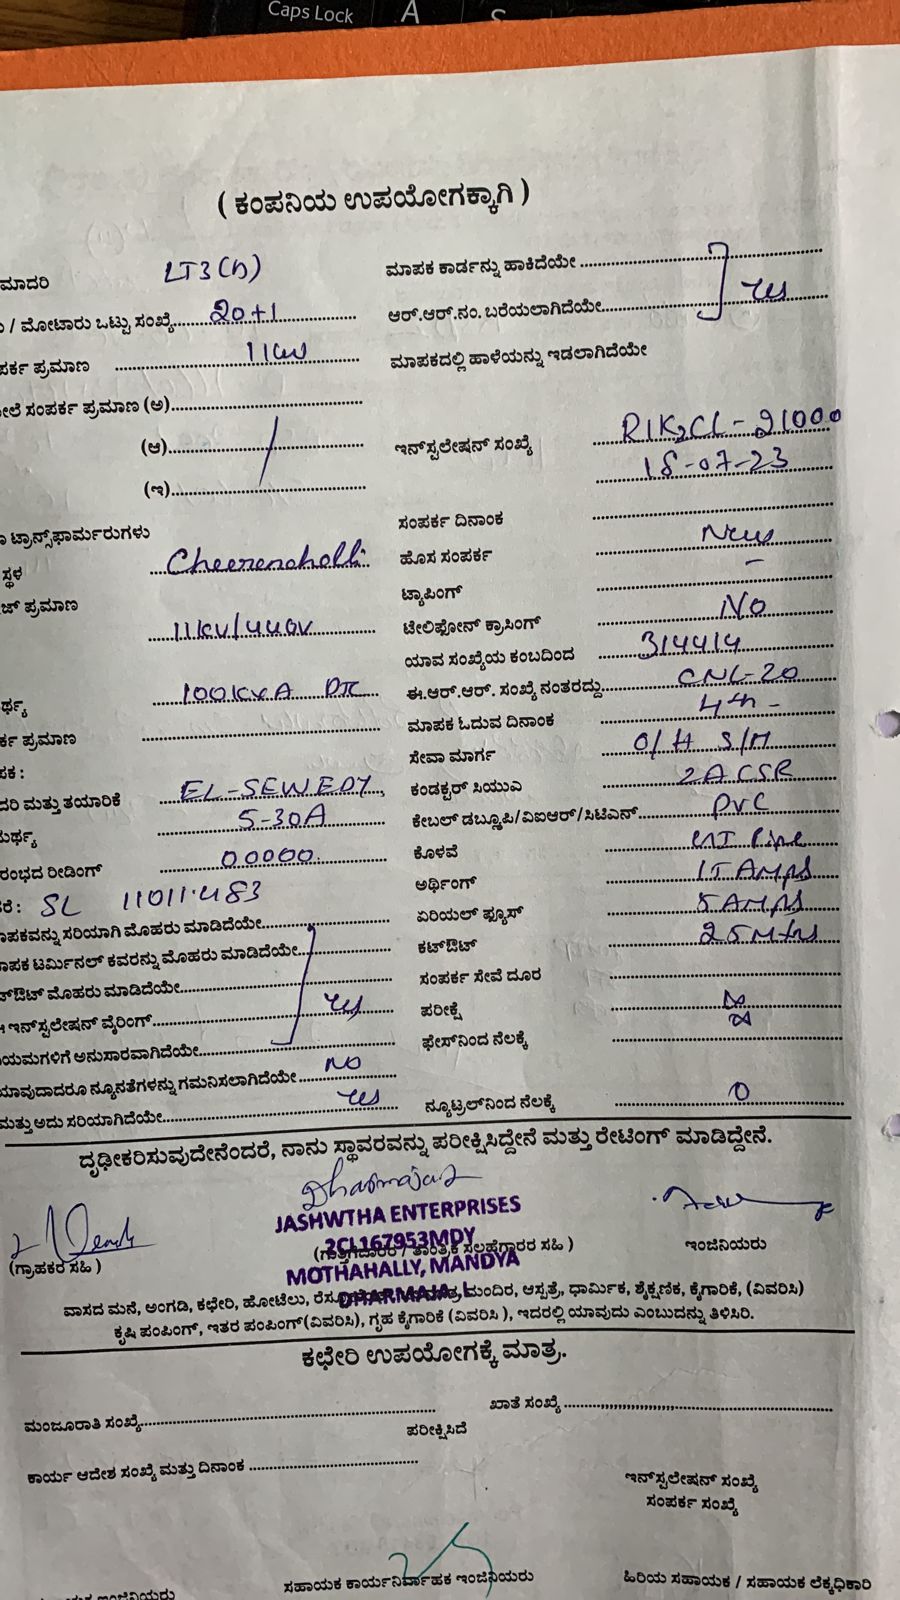 Caps Lock
A
S
( ಕಂಪನಿಯ ಉಪಯೋಗಕ್ಕಾಗಿ )
ಮಾದರಿ LT3(b)
/ ಮೋಟಾರು ಒಟ್ಟು ಸಂಖ್ಯೆ 20+1
ಪರ್ಕ ಪ್ರಮಾಣ 1KW
ಸಂಪರ್ಕ ಪ್ರಮಾಣ (ಅ)
(ಆ)
(ಇ)
ಟ್ರಾನ್ಸ್‌ಫಾರ್ಮರುಗಳು
ಸ್ಥಳ
ಪ್ರಮಾಣ
11KV/440V
100KVA DTC
ರ್ಥ್ಯ
ರ್ಕ ಪ್ರಮಾಣ
ಪಕ :
ದರಿ ಮತ್ತು ತಯಾರಿಕೆ EL-SEWEDY,
ಮರ್ಥ್ಯ 5-30A
ರಂಭದ ರೀಡಿಂಗ್ 00000.
SL 11011483
ಾಪಕವನ್ನು ಸರಿಯಾಗಿ ಮೊಹರು ಮಾಡಿದೆಯೇ
ಾಪಕ ಟರ್ಮಿನಲ್ ಕವರನ್ನು ಮೊಹರು ಮಾಡಿದೆಯೇ
ಟ್‌ಔಟ್ ಮೊಹರು ಮಾಡಿದೆಯೇ
ಇನ್‌ಸ್ಟಲೇಷನ್ ವೈರಿಂಗ್ Yes
ಯಮಗಳಿಗೆ ಅನುಸಾರವಾಗಿದೆಯೇ
ಯಾವುದಾದರೂ ನ್ಯೂನತೆಗಳನ್ನು ಗಮನಿಸಲಾಗಿದೆಯೇ NO
ಮತ್ತು ಅದು ಸರಿಯಾಗಿದೆಯೇ Yes
ಮಾಪಕ ಕಾರ್ಡನ್ನು ಹಾಕಿದೆಯೇ
ಆರ್.ಆರ್.ನಂ. ಬರೆಯಲಾಗಿದೆಯೇ Yes
ಮಾಪಕದಲ್ಲಿ ಹಾಳೆಯನ್ನು ಇಡಲಾಗಿದೆಯೇ
ಇನ್‌ಸ್ಟಲೇಷನ್ ಸಂಖ್ಯೆ
18-07-23
ಸಂಪರ್ಕ ದಿನಾಂಕ
ಹೊಸ ಸಂಪರ್ಕ New
ಟ್ಯಾಪಿಂಗ್ -
ಟೇಲಿಫೋನ್ ಕ್ರಾಸಿಂಗ್ NO
ಯಾವ ಸಂಖ್ಯೆಯ ಕಂಬದಿಂದ 314414
ಈ.ಆರ್.ಆರ್. ಸಂಖ್ಯೆ ನಂತರದ್ದು CNL-20
ಮಾಪಕ ಓದುವ ದಿನಾಂಕ 4th -
ಸೇವಾ ಮಾರ್ಗ O/H S/M
ಕಂಡಕ್ಟರ್ ಸಿಯುವಿ 2 ACSR
ಕೇಬಲ್ ಡಬ್ಲೂಪಿ/ವಿಐಆರ್/ಸಿಟಿಎಸ್ PVC
ಕೊಳವೆ GI Pipe
ಅರ್ಥಿಂಗ್ 15 AMPS
ಏರಿಯಲ್ ಫ್ಯೂಸ್ 5 AMPS
ಕಟ್‌ಔಟ್ 25 Mtrs
ಸಂಪರ್ಕ ಸೇವೆ ದೂರ
ಪರೀಕ್ಷೆ
ಫೇಸ್‌ನಿಂದ ನೆಲಕ್ಕೆ
ನ್ಯೂಟ್ರಲ್‌ನಿಂದ ನೆಲಕ್ಕೆ 0
ದೃಢೀಕರಿಸುವುದೇನೆಂದರೆ, ನಾನು ಸ್ಥಾವರವನ್ನು ಪರೀಕ್ಷಿಸಿದ್ದೇನೆ ಮತ್ತು ರೇಟಿಂಗ್ ಮಾಡಿದ್ದೇನೆ.
JASHWTHA ENTERPRISES
2CL167953MDY
MOTHAHALLY, MANDYA
DHARMAJA. L
(ಗ್ರಾಹಕರ ಸಹಿ )
(ಗುತ್ತಿಗೆದಾರರ / ತಾಂತ್ರಿಕ ಸಲಹೆಗಾರರ ಸಹಿ )
ಇಂಜಿನಿಯರು
ವಾಸದ ಮನೆ, ಅಂಗಡಿ, ಕಛೇರಿ, ಹೋಟೆಲು, ಮಂದಿರ, ಆಸ್ಪತ್ರೆ, ಧಾರ್ಮಿಕ, ಶೈಕ್ಷಣಿಕ, ಕೈಗಾರಿಕೆ, (ವಿವರಿಸಿ)
ಕೃಷಿ ಪಂಪಿಂಗ್, ಇತರ ಪಂಪಿಂಗ್(ವಿವರಿಸಿ), ಗೃಹ ಕೈಗಾರಿಕೆ (ವಿವರಿಸಿ ), ಇದರಲ್ಲಿ ಯಾವುದು ಎಂಬುದನ್ನು ತಿಳಿಸಿರಿ.
ಕಛೇರಿ ಉಪಯೋಗಕ್ಕೆ ಮಾತ್ರ.
ಮಂಜೂರಾತಿ ಸಂಖ್ಯೆ
ಖಾತೆ ಸಂಖ್ಯೆ
ಪರೀಕ್ಷಿಸಿದೆ
ಕಾರ್ಯ ಆದೇಶ ಸಂಖ್ಯೆ ಮತ್ತು ದಿನಾಂಕ
ಇನ್‌ಸ್ಟಲೇಷನ್ ಸಂಖ್ಯೆ
ಸಂಪರ್ಕ ಸಂಖ್ಯೆ
ಇಂಜಿನಿಯರು
ಸಹಾಯಕ ಕಾರ್ಯನಿರ್ವಾಹಕ ಇಂಜಿನಿಯರು
ಹಿರಿಯ ಸಹಾಯಕ / ಸಹಾಯಕ ಲೆಕ್ಕಧಿಕಾರಿ